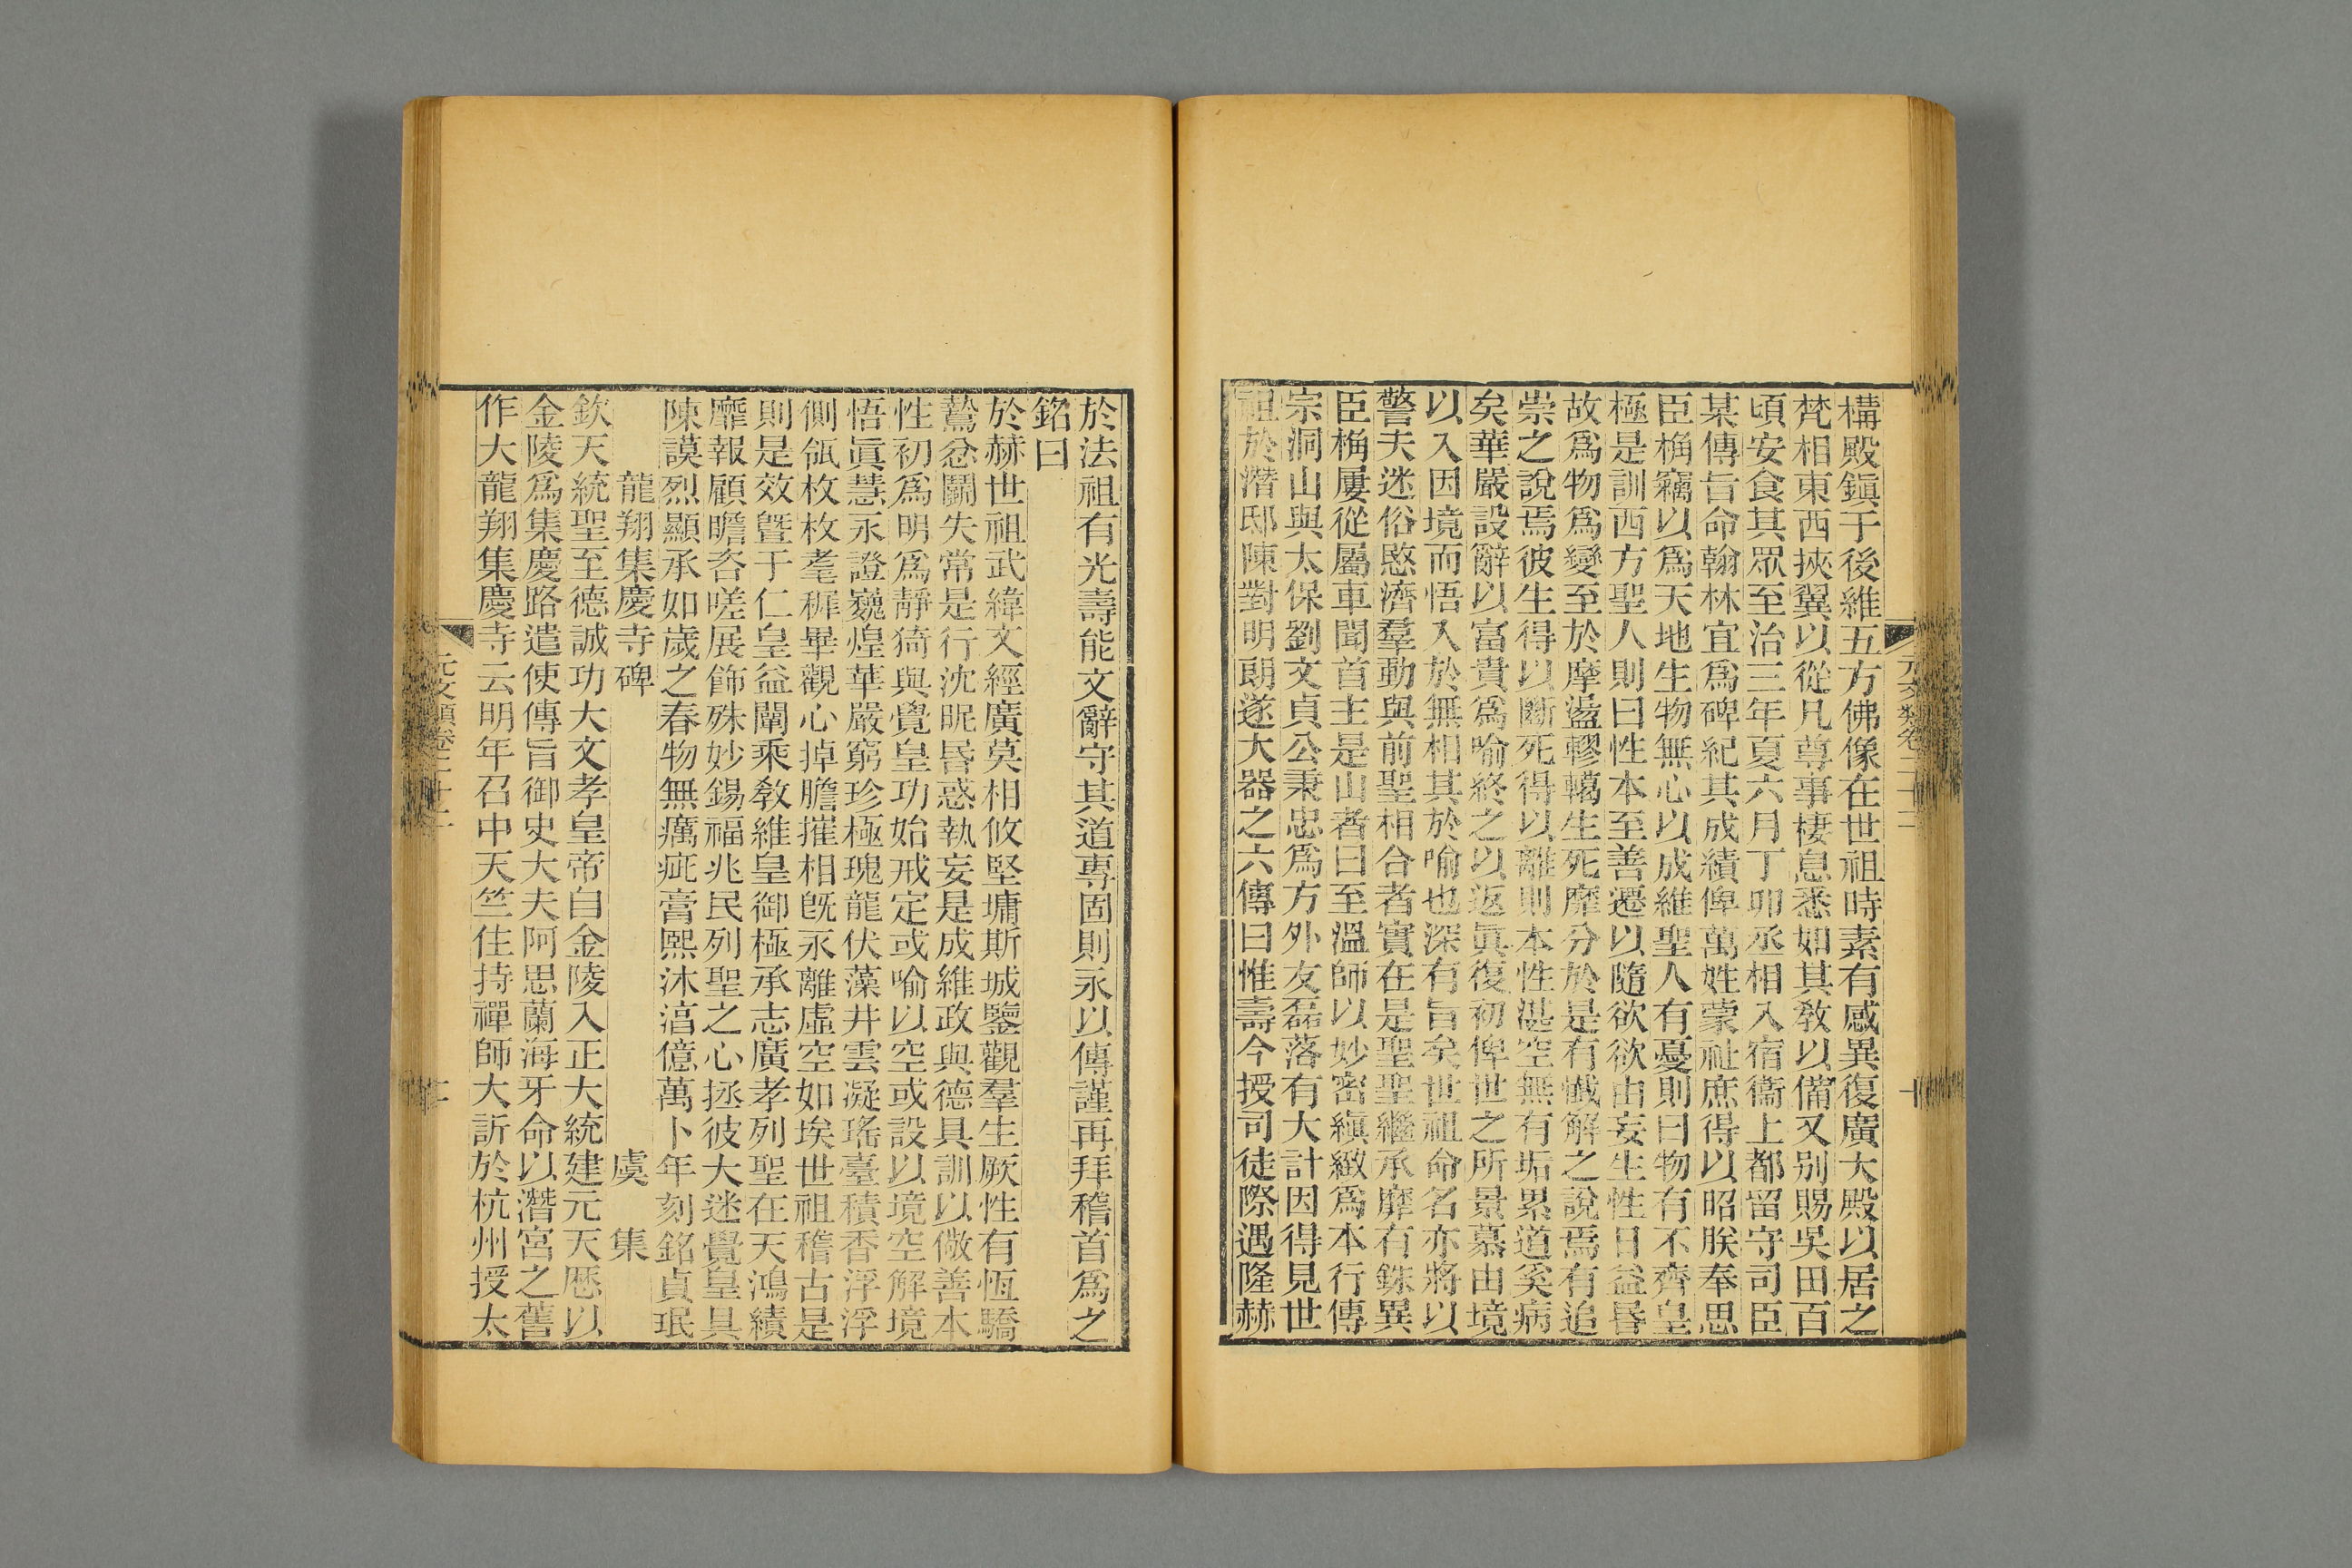 構殿鎭于後維五方佛像在世祖時素有感異復廣大殿以居之
梵相東西挾翼以從凡尊事棲息悉如其敎以備又别賜吳田百
頃安食其眾至治三年夏六月丁卯丞相入宿衞上都留守司臣
某傳旨命翰林宜爲碑紀其成績俾萬姓蒙祉庶得以昭朕奉思
臣桷竊以爲天地生物無心以成維聖人有憂則曰物有不齊皇
極是訓西方聖人則曰性本至善遷以隨欲欲由妄生性日益昏
故爲物爲變至於摩盪轇轕生死靡分於是有懺解之說焉有追
崇之說焉彼生得以斷死得以離則本性湛空無有垢累道奚病
矣華嚴設辭以富貴爲喻終之以返眞復初俾世之所景慕由境
以入因境而悟入於無相其於喻也深有旨矣世祖命名亦將以
警夫迷俗愍濟羣動與前聖相合者實在是聖聖繼承靡有銖異
臣桷屢從屬車聞首主是山者曰至溫師以妙密縝緻爲本行傳
宗洞山與太保劉文貞公秉忠爲方外友磊落有大計因得見世
祖於潛邸陳對明朗遂大器之六傳曰惟壽今授司徒際遇隆赫
元文類卷二十二
十
於法祖有光壽能文辭守其道專固則永以傳謹再拜稽首爲之
銘曰
於赫世祖武緯文經廣莫相攸堅墉斯城鑒觀羣生厥性有恆驕
鷙忿鬭失常是行沈昵昬惑執妄是成維政與德具訓以儆善本
性初爲明爲靜猗與覺皇功始戒定或喻以空或設以境空解境
悟眞慧永證巍煌華嚴窮珍極瑰龍伏藻井雲凝瑤臺積香浮浮
側瓴枚枚耄穉畢觀心掉膽摧相旣永離虛空如埃世祖稽古是
則是效曁于仁皇益闡乘敎維皇御極承志廣孝列聖在天鴻績
靡報顧瞻咨嗟展飾殊妙錫福兆民列聖之心拯彼大迷覺皇具
陳謨烈顯承如歲之春物無癘疵膏熙沐湇億萬卜年刻銘貞珉
龍翔集慶寺碑　虞集
欽天統聖至德誠功大文孝皇帝自金陵入正大統建元天曆以
金陵爲集慶路遣使傳旨御史大夫阿思蘭海牙命以潛宮之舊
作大龍翔集慶寺云明年召中天竺住持禪師大訢於杭州授太
元文類卷二十二